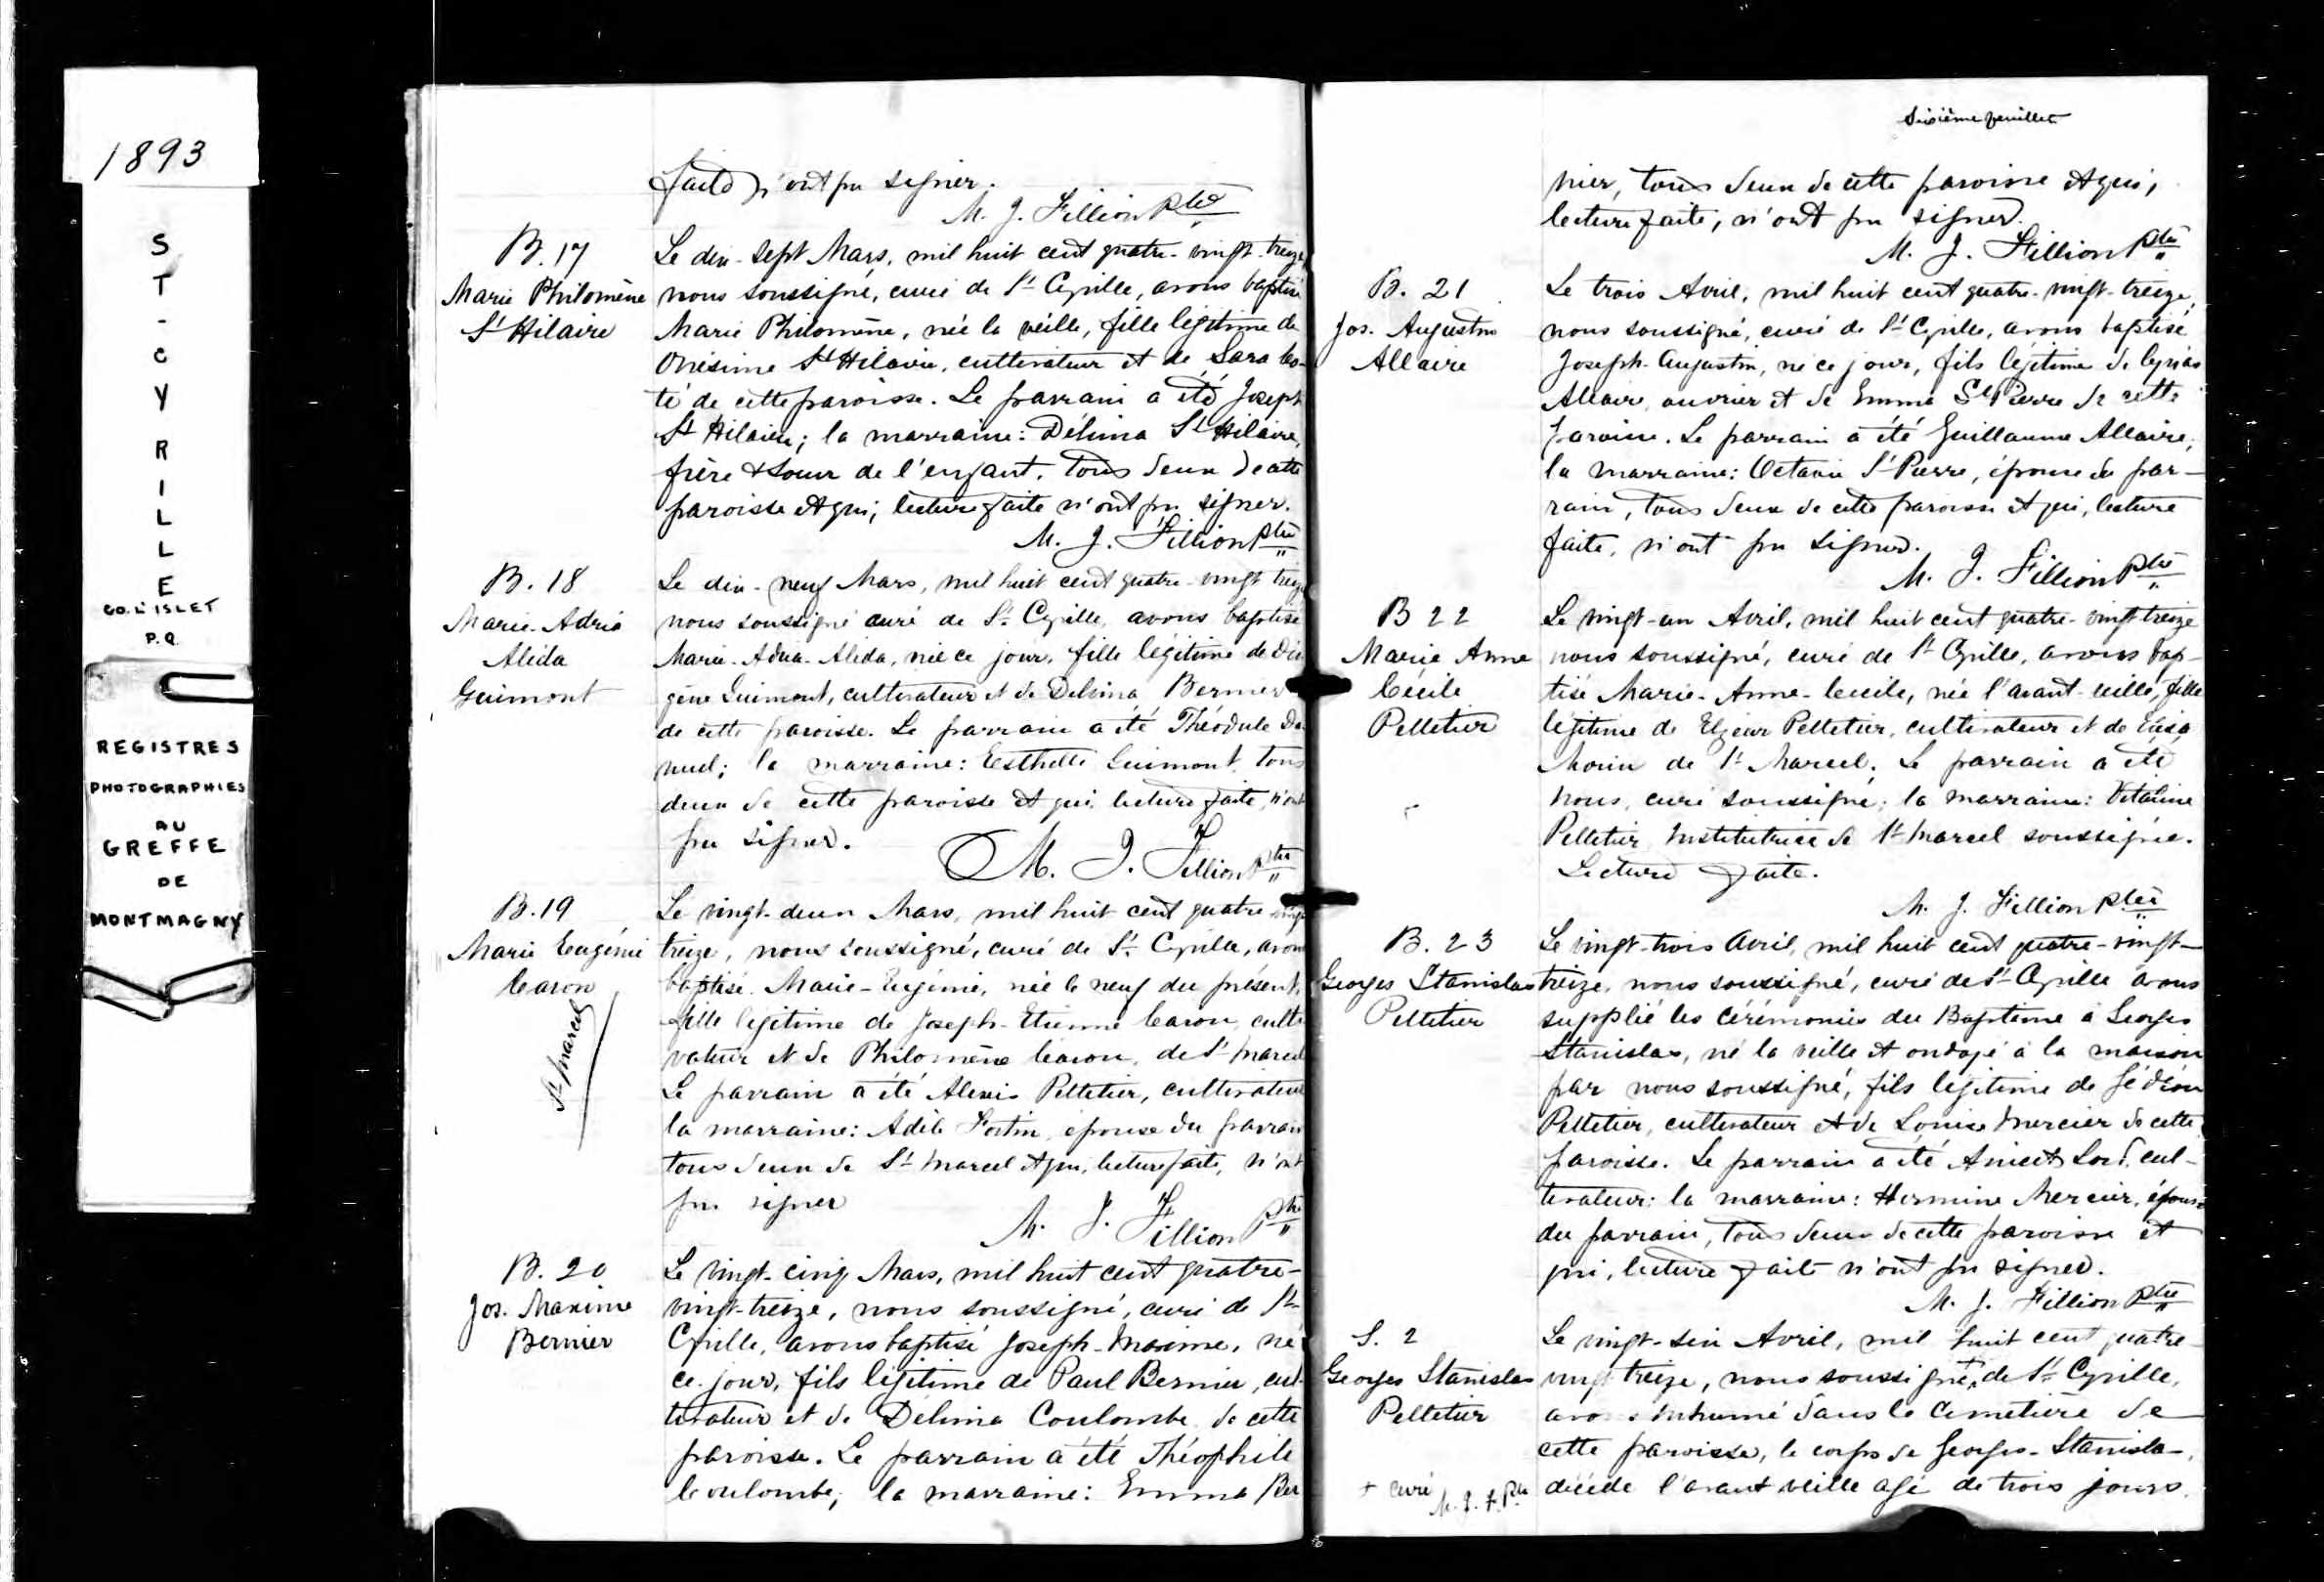 1893
ST-CYRILLE
CO. L'ISLET
P.Q.
REGISTRES
PHOTOGRAPHIES
AU
GREFFE
DE
MONTMAGNY
faite n'ont pu signer.
M. J. Fillion Ptre
B. 17
Marie Philomène
St Hilaire
Le dix-sept Mars, mil huit cent quatre-vingt-treize
nous soussigné, curé de St Cyrille, avons baptisé
Marie Philomène, née la veille, fille légitime de
Onésime St Hilaire, cultivateur et de Sara
té de cette paroisse. Le parrain a été Joseph
St Hilaire; la marraine: Délima St Hilaire,
frère & soeur de l'enfant, tous deux de cette
paroisse et qui, lecture faite n'ont pu signer.
M. J. Fillion Ptre
B. 18
Marie-Adria
Alida
Guimont
Le dix-neuf Mars, mil huit cent quatre-vingt treize
nous soussigné curé de St Cyrille, avons baptisé
Marie-Adria-Alida, née ce jour, fille légitime de Dio
gène Guimont, cultivateur et de Delvina Bernier
de cette paroisse. Le parrain a été Théodule
la marraine: Esthelle Guimont, tous
deux de cette paroisse et qui lecture faite, n'ont
pu signer.
M. J. Fillion Ptre
B. 19
Marie Eugénie
Caron
St Marcel
Le vingt-deux Mars, mil huit cent quatre vingt
treize, nous soussigné, curé de St Cyrille, avons
baptisé Marie-Eugénie, née le neuf du présent,
fille légitime de Joseph-Etienne Caron, culti
vateur et de Philomène Caron, de St Marcel
Le parrain a été Alexis Pelletier, cultivateur
la marraine: Adèle Fortin, épouse du parrain
tous deux de St Marcel et qui, lecture faite, n'ont
pu signer
M. J. Fillion Ptre
B. 20
Jos. Maxime
Bernier
Le vingt-cinq Mars, mil huit cent quatre-
vingt-treize, nous soussigné, curé de St
Cyrille, avons baptisé Joseph-Maxime, né
ce jour, fils légitime de Paul Bernier, cul-
tivateur et de Délima Coulombe de cette
paroisse. Le parrain a été Théophile
Coulombe; la marraine: Emma Ber
Sixième feuillet
nier, tous deux de cette paroisse et qui,
lecture faite, n'ont pu signer.
M. J. Fillion Ptre
B. 21
Jos. Augustin
Allaire
Le trois Avril, mil huit cent quatre-vingt-treize,
nous soussigné, curé de St Cyrille, avons baptisé
Joseph-Augustin, né ce jour, fils légitime de Cyrias
Allaire, ouvrier et de Emma St Pierre de cette
paroisse. Le parrain a été Guillaume Allaire,
la marraine: Octavie St Pierre, épouse du par-
rain, tous deux de cette paroisse et qui, lecture
faite, n'ont pu signer.
M. J. Fillion Ptre
B 22
Marie Anne
Cécile
Pelletier
Le vingt-un Avril, mil huit cent quatre-vingt treize
nous soussigné, curé de St Cyrille, avons bap-
tisé Marie-Anne-Cécile, née l'avant-veille, fille
légitime de Elzéar Pelletier, cultivateur et de
Morin de St Marcel. Le parrain a été
nous, curé soussigné; la marraine: Vitaline
Pelletier Institutrice de St Marcel soussignée.
Lecture faite.
M. J. Fillion Ptre
B. 23
Georges Stanislas
Pelletier
Le vingt-trois Avril, mil huit cent quatre-vingt-
treize, nous soussigné, curé de St Cyrille avons
supplié les cérémonies du Baptême à Georges
Stanislas, né la veille et ondoyé à la maison
par nous soussigné, fils légitime de Gédéon
Pelletier, cultivateur et de Louise Mercier de cette
paroisse. Le parrain a été Anicet Lord, cul-
tivateur; la marraine: Hermine Mercier, épouse
du parrain, tous deux de cette paroisse et
qui, lecture faite n'ont pu signer.
M. J. Fillion Ptre
S. 2
Georges Stanislas
Pelletier
Le vingt-six Avril, mil huit cent quatre
vingt treize, nous soussigné + de St Cyrille,
avons inhumé dans le cimetière de
cette paroisse, le corps de Georges-Stanislas,
décédé l'avant veille âgé de trois jours.
+ curé M. J. F. Ptre